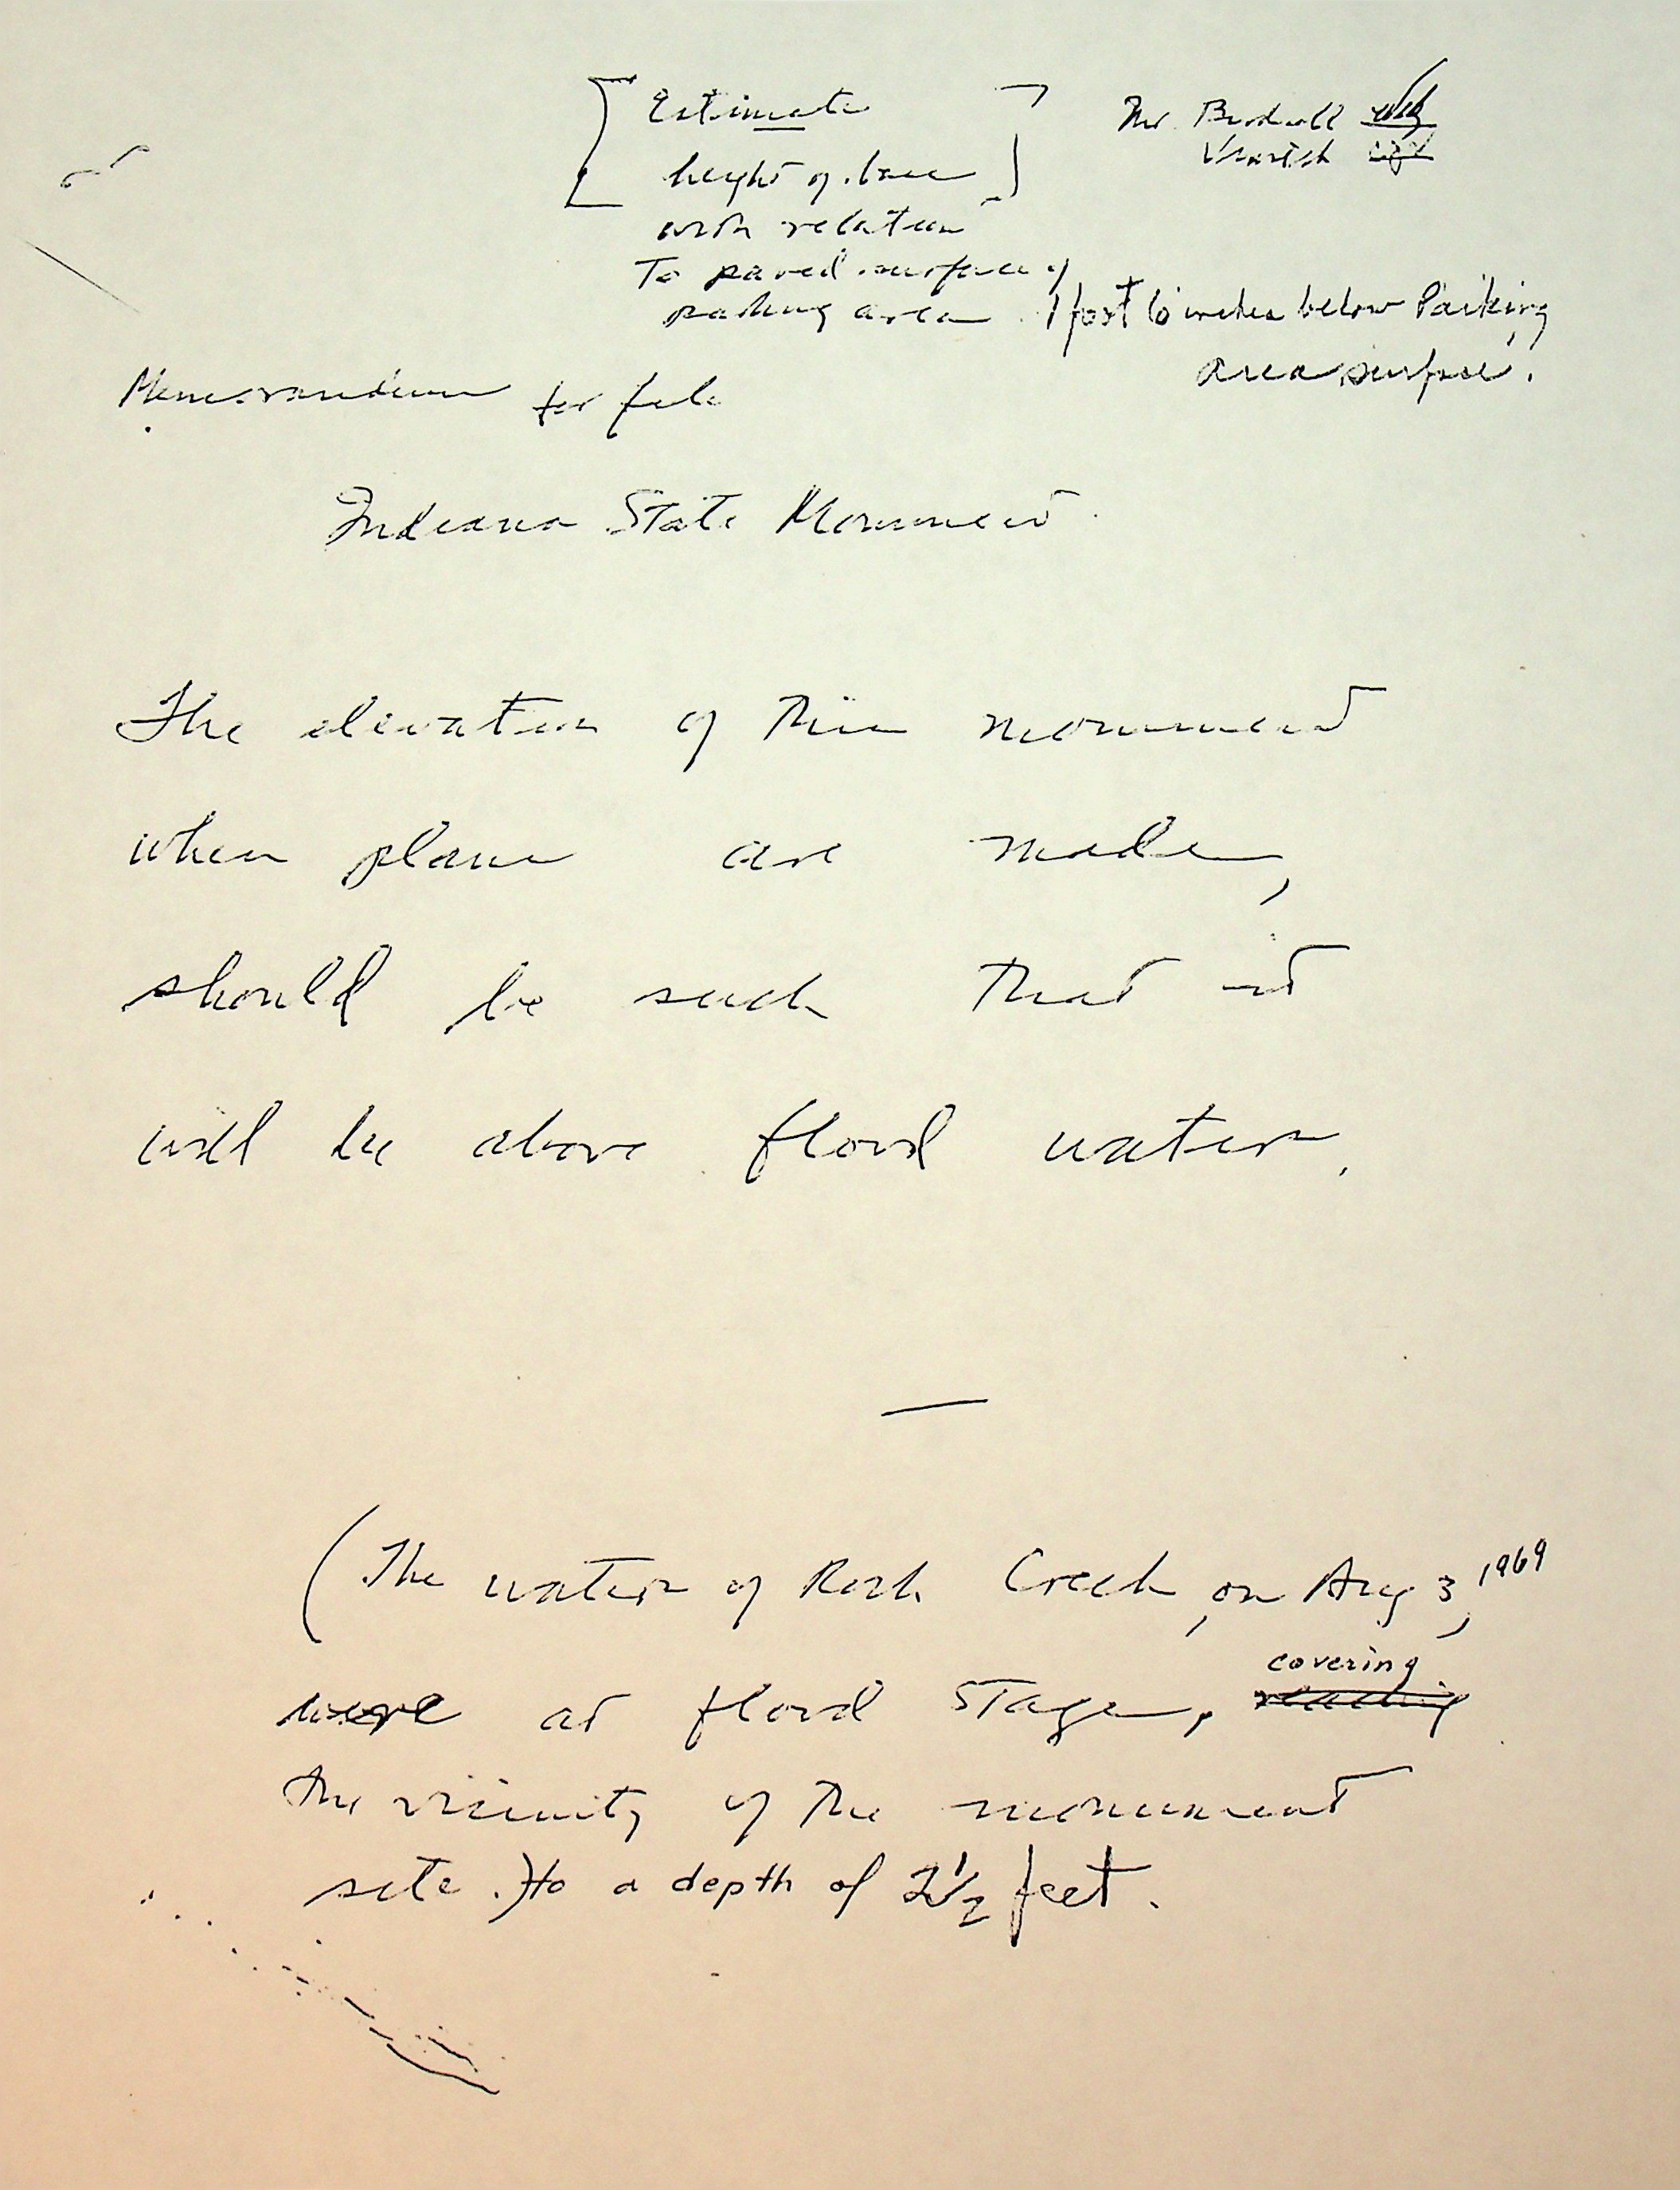 Estimate
height of base
with relation
To paved surface of
parking area
Mr.
1 foot 6 inches below Parking
area surface.
Memorandum for file
Indiana State Monument.
The elevation of this monument
when plans are made,
should be such that it
will be above flood water.
(The waters of Rock Creek, on Aug 3, 1969
were at flood stage, covering
the vicinity of the monument
site.) to a depth of 2½ feet.